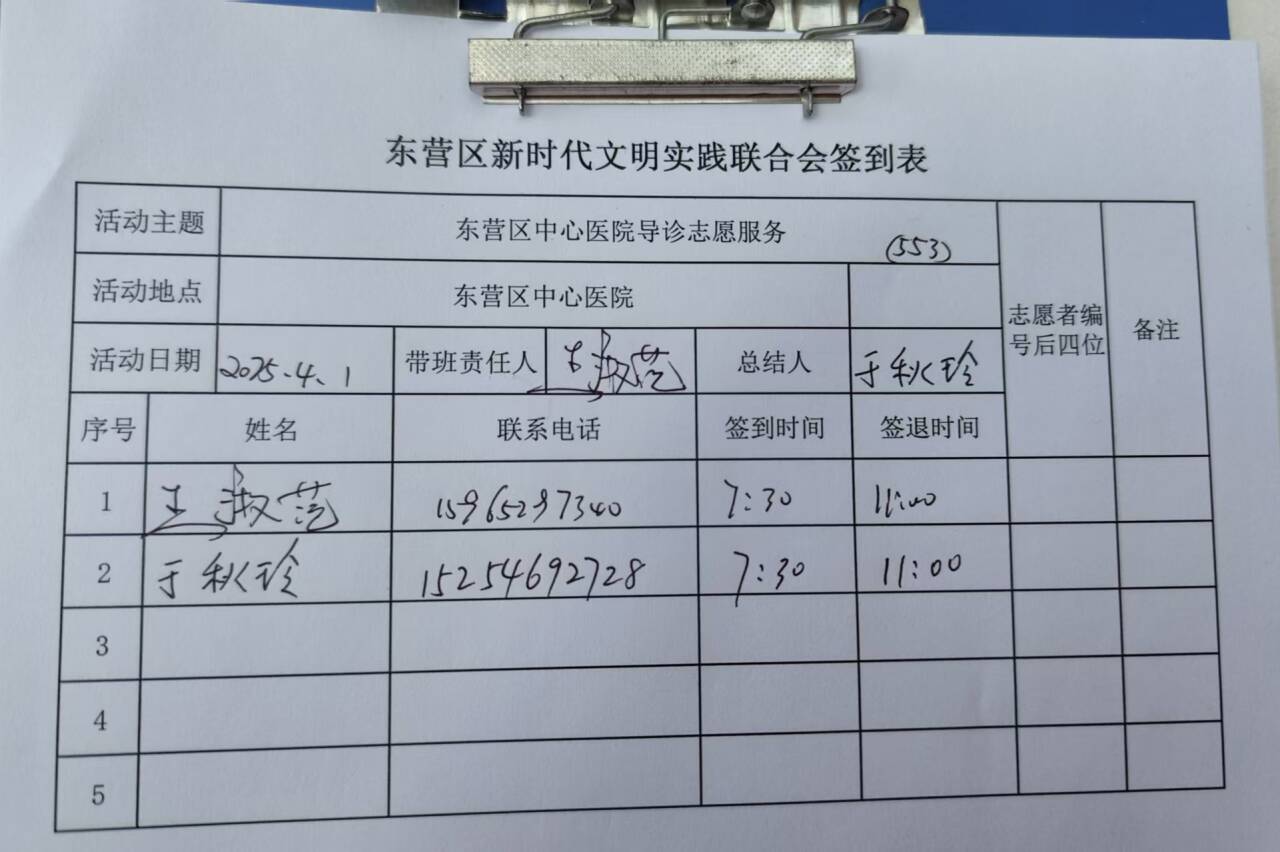 东营区新时代文明实践联合会签到表
活动主题 东营区中心医院导诊志愿服务 (553) 志愿者编号后四位 备注
活动地点 东营区中心医院
活动日期 2025.4.1 带班责任人 王淑范 总结人 于秋玲
序号 姓名 联系电话 签到时间 签退时间
1 王淑范 15965297340 7:30 11:00
2 于秋玲 15254692728 7:30 11:00
3
4
5